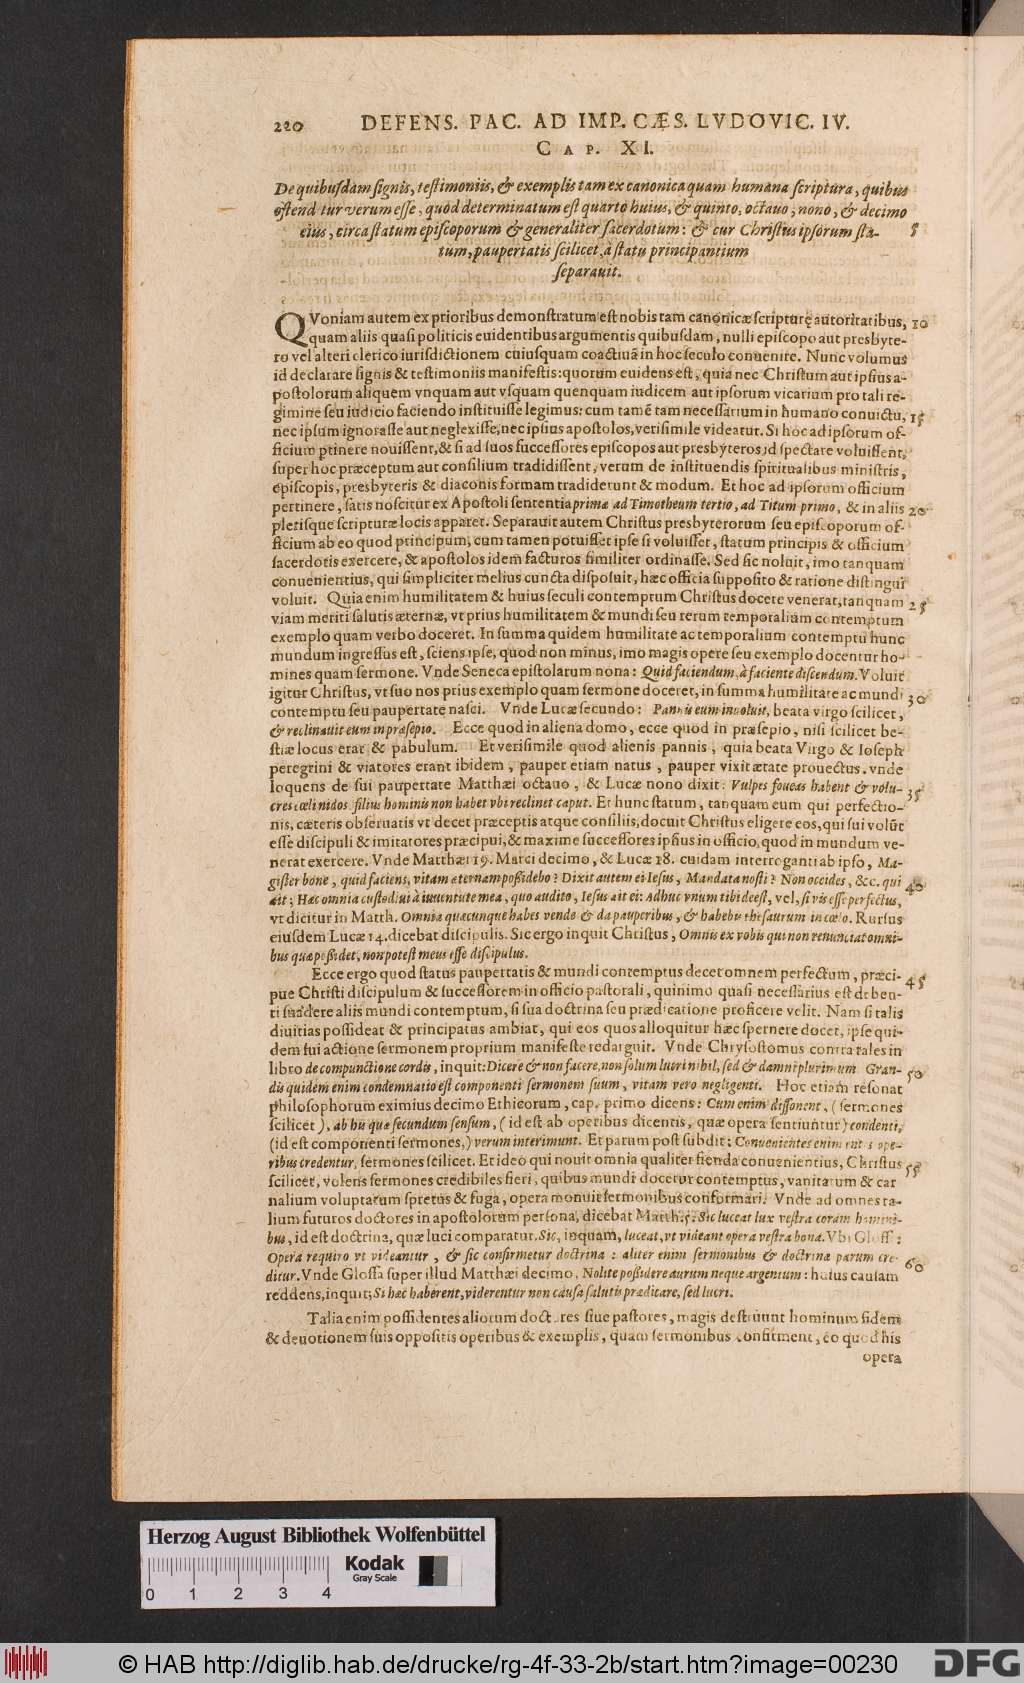 220 DEFENS. PAC. AD IMP. CÆS. LVDOVIC. IV.
CAP. XI.
De quibusdam signis, testimoniis, & exemplis tam ex canonica quam humana scriptura, quibus
ostend tur verum esse, quòd determinatum est quarto huius, & quinto, octauo, nono, & decimo
eius, circa statum episcoporum & generaliter sacerdotum: & cur Christus ipsorum sta- 5
tum, paupertatis scilicet, à statu principantium
separauit.
QVoniam autem ex prioribus demonstratum est nobis tam canonicæ scripturę autoritatibus, 10
quam aliis quasi politicis euidentibus argumentis quibusdam, nulli episcopo aut presbyte-
ro vel alteri clerico iurisdictionem cuiusquam coactiuā in hoc seculo conuenire. Nunc volumus
id declarare signis & testimoniis manifestis: quorum euidens est, quia nec Christum aut ipsius a-
postolorum aliquem vnquam aut vsquam quenquam iudicem aut ipsorum vicarium pro tali re-
gimine seu iudicio faciendo instituisse legimus: cum tamē tam necessarium in humano conuictu, 15
nec ipsum ignorasse aut neglexisse, nec ipsius apostolos, verisimile videatur. Si hoc ad ipsorum of-
ficium ptinere nouissent, & si ad suos successores episcopos aut presbyteros id spectare voluissent,
super hoc præceptum aut consilium tradidissent, verum de instituendis spiritualibus ministris,
episcopis, presbyteris & diaconis formam tradiderunt & modum. Et hoc ad ipsorum officium
pertinere, satis noscitur ex Apostoli sententia primæ ad Timotheum tertio, ad Titum primo, & in aliis 20
plerisque scripturæ locis apparet. Separauit autem Christus presbyterorum seu episcoporum of-
ficium ab eo quod principum, cum tamen potuisset ipse si voluisset, statum principis & officium
sacerdotis exercere, & apostolos idem facturos similiter ordinasse. Sed sic noluit, imo tanquam
conuenientius, qui simpliciter melius cuncta disposuit, hæc officia supposito & ratione distingui
voluit. Quia enim humilitatem & huius seculi contemptum Christus docere venerat, tanquam 25
viam meriti salutis æternæ, vt prius humilitatem & mundi seu rerum temporalium contemptum
exemplo quam verbo doceret. In summa quidem humilitate ac temporalium contemptu hunc
mundum ingressus est, sciens ipse, quod non minus, imo magis opere seu exemplo docentur ho-
mines quam sermone. Vnde Seneca epistolarum nona: Quid faciendum, à faciente discendum. Voluit
igitur Christus, vt suo nos prius exemplo quam sermone doceret, in summa humilitate ac mundi 30
contemptu seu paupertate nasci. Vnde Lucæ secundo: Pannis eum inuoluit, beata virgo scilicet,
& reclinauit eum in præsepio. Ecce quod in aliena domo, ecce quod in præsepio, nisi scilicet be-
stiæ locus erat & pabulum. Et verisimile quod alienis pannis, quia beata Virgo & Ioseph
peregrini & viatores erant ibidem, pauper etiam natus, pauper vixit ætate prouectus. vnde
loquens de sui paupertate Matthæi octauo, & Lucæ nono dixit: Vulpes foueas habent & volu- 35
cres cæli nidos, filius hominis non habet vbi reclinet caput. Et hunc statum, tanquam eum qui perfectio-
nis, cæteris obseruatis vt decet præceptis atque consiliis, docuit Christus eligere eos, qui sui volūt
esse discipuli & imitatores præcipui, & maxime successores ipsius in officio, quod in mundum ve-
nerat exercere. Vnde Matthæi 19. Marci decimo, & Lucæ 18. cuidam interroganti ab ipso, Ma-
gister bone, quid faciens, vitam æternam possidebo? Dixit autem ei Iesus, Mandata nosti? Non occides, &c. qui 40
ait; Hæc omnia custodiui à iuuentute mea, quo audito, Iesus ait ei: Adhuc vnum tibi deest, vel, si vis esse perfectus,
vt dicitur in Matth. Omnia quæcunque habes vende & da pauperibus, & habebis thesaurum in cœlo. Rursus
eiusdem Lucæ 14. dicebat discipulis. Sic ergo inquit Christus, Omnis ex vobis qui non renunciat omni-
bus quæ possidet, non potest meus esse discipulus.
Ecce ergo quod status paupertatis & mundi contemptus decet omnem perfectum, præci- 45
pue Christi discipulum & successorem in officio pastorali, quinimo quasi necessarius est deben-
ti suadere aliis mundi contemptum, si sua doctrina seu prædicatione proficere velit. Nam si talis
diuitias possideat & principatus ambiat, qui eos quos alloquitur hæc spernere docet, ipse qui-
dem sui actione sermonem proprium manifeste redarguit. Vnde Chrysostomus contra tales in
libro de compunctione cordis, inquit: Dicere & non facere, non solum lucri nihil, sed & damni plurimum. Gran- 50
dis quidem enim condemnatio est componenti sermonem suum, vitam vero negligenti. Hoc etiam resonat
philosophorum eximius decimo Ethicorum, cap. primo dicens: Cum enim dissonent, (sermones
scilicet), ab his quæ secundum sensum, (id est ab operibus dicentis, quæ opera sentiuntur) condenti,
(id est componenti sermones,) verum interimunt. Et parum post subdit; Conuenientes enim ope-
ribus credentur, sermones scilicet. Et ideo qui nouit omnia qualiter fienda conuenientius, Christus 55
scilicet, volens sermones credibiles fieri, quibus mundi docetur contemptus, vanitatum & car
nalium voluptatum spretus & fuga, opera monuit sermonibus conformari. Vnde ad omnes ta-
lium futuros doctores in apostolorum persona, dicebat Matth. 5. Sic luceat lux vestra coram homini-
bus, id est doctrina, quæ luci comparatur. Sic, inquam, luceat, vt videant opera vestra bona. Vbi Gloss:
Opera requiro vt videantur, & sic confirmetur doctrina: aliter enim sermonibus & doctrinæ parum cre- 60
ditur. Vnde Glossa super illud Matthæi decimo, Nolite possidere aurum neque argentum: huius causam
reddens, inquit; Si hæc haberent, viderentur non causa salutis prædicare, sed lucri.
Talia enim possidentes aliorum doctores siue pastores, magis destruunt hominum fidem
& deuotionem suis oppositis operibus & exemplis, quam sermonibus confirment, eo quod his
opera
Herzog August Bibliothek Wolfenbüttel
0 1 2 3 4
Kodak
Gray Scale
© HAB http://diglib.hab.de/drucke/rg-4f-33-2b/start.htm?image=00230
DFG